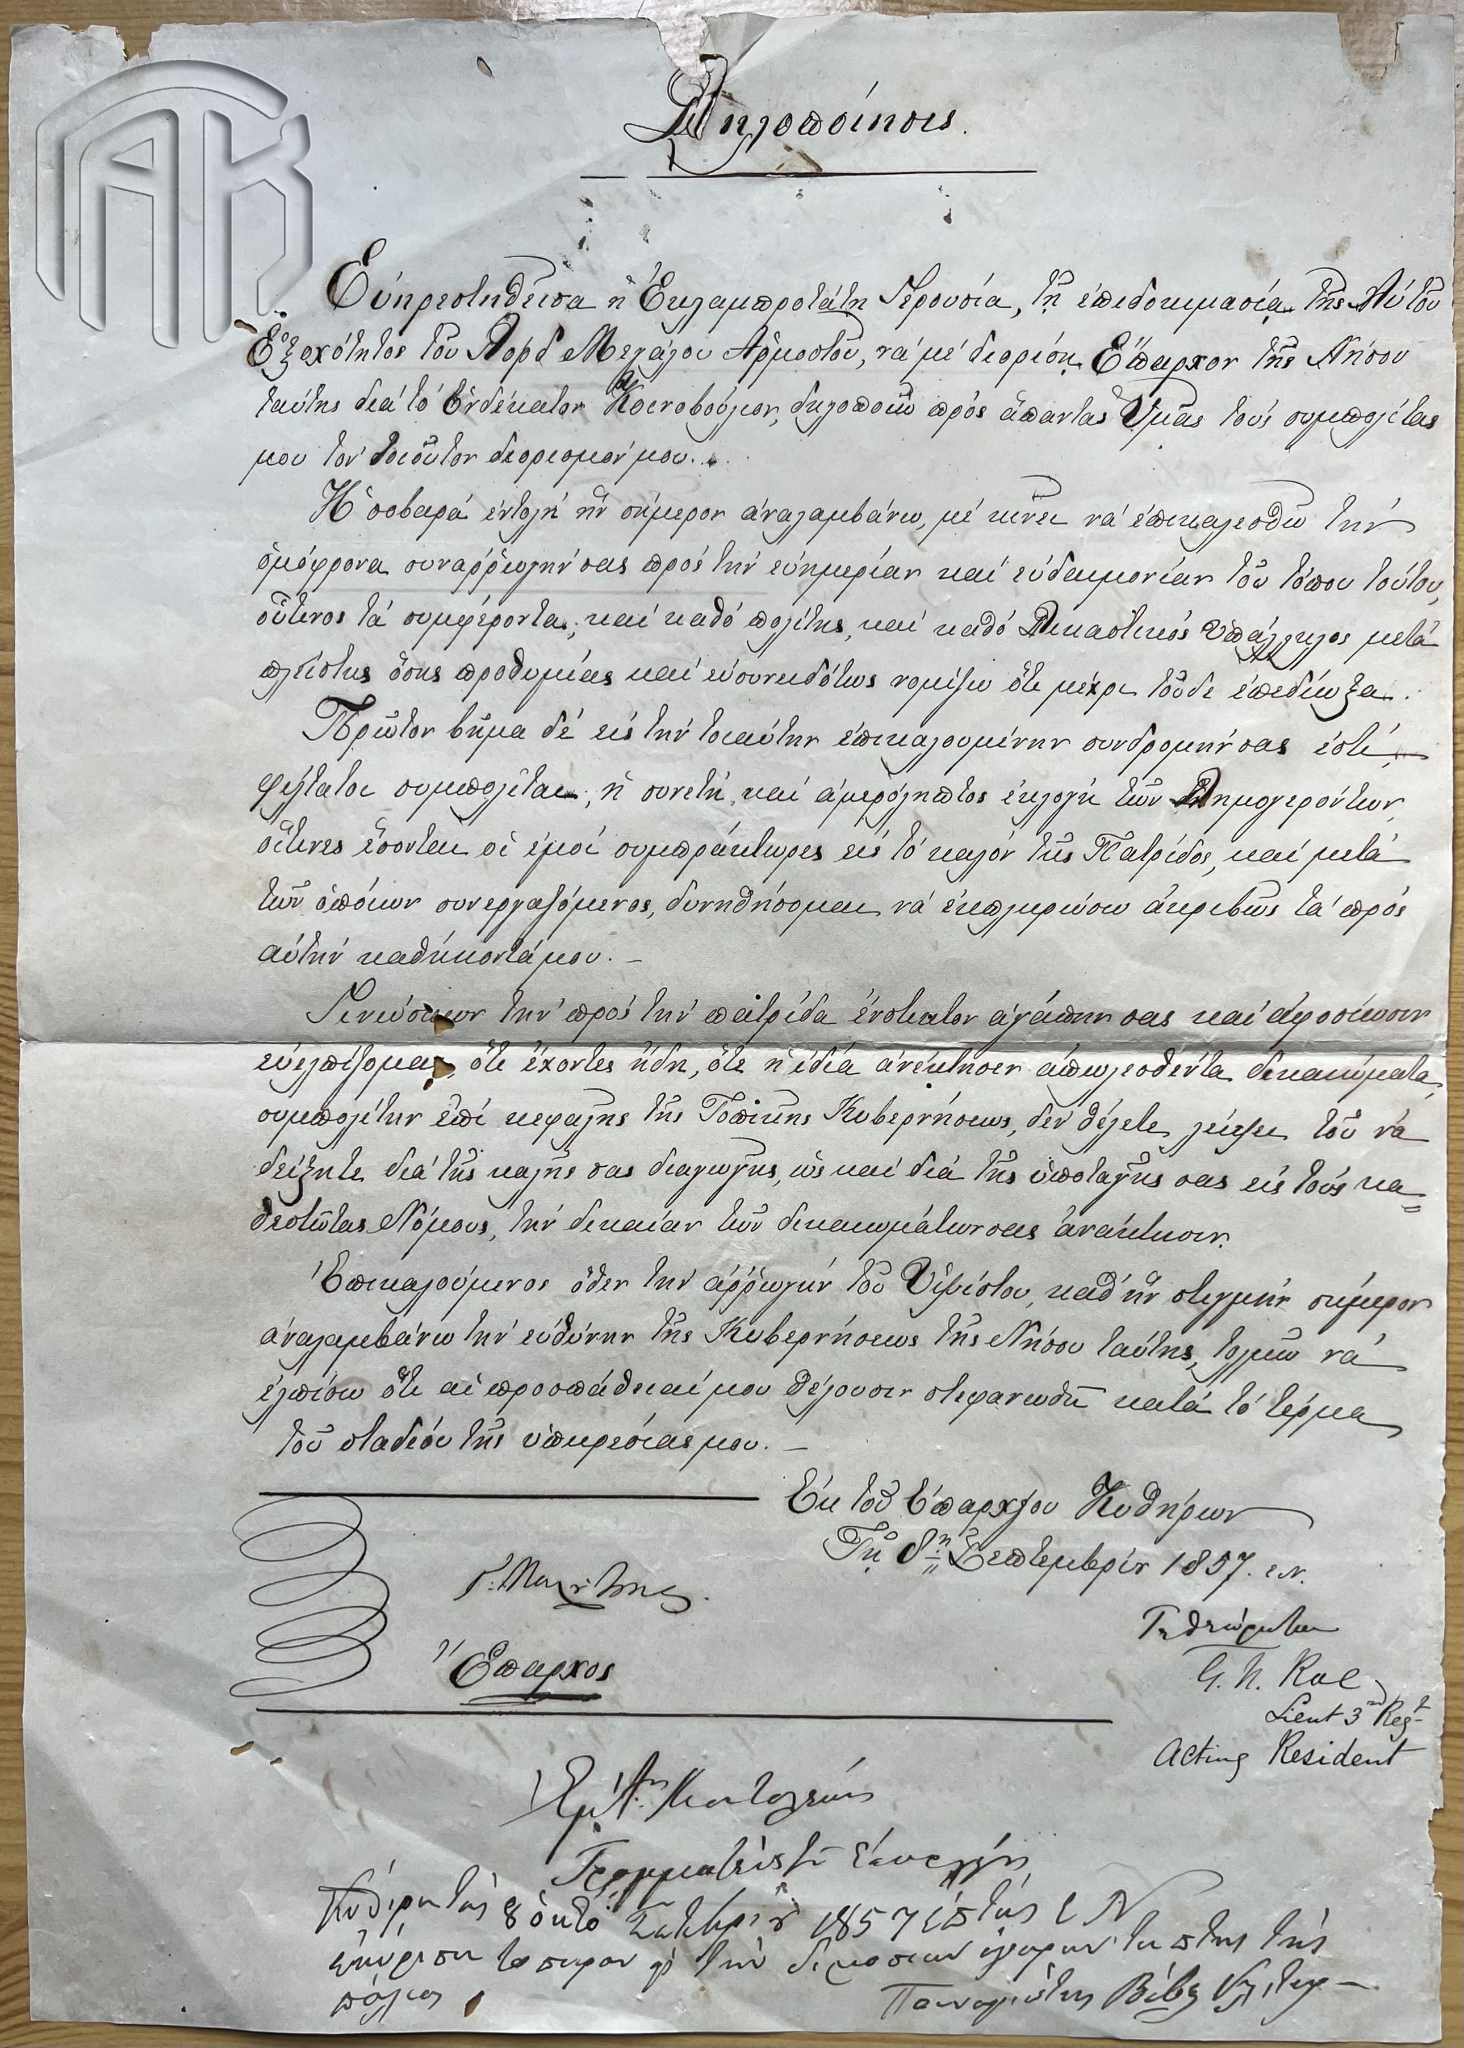 Δηλοποίησις.
Εὐηρεστηθεῖσα ἡ Ἐκλαμπροτάτη Γερουσία, τῇ ἐπιδοκιμασίᾳ τῆς Αὐτοῦ
Ἐξοχότητος τοῦ Λὸρδ Μεγάλου Ἁρμοστοῦ, νά μέ διορίσῃ Ἔπαρχον τῆς Νήσου
ταύτης διά τό Ἑνδέκατον Κοινοβούλιον, δηλοποιῶ πρός ἅπαντας Ὑμᾶς τούς συμπολίτας
μου τόν τοιοῦτον διορισμόν μου.
Ἡ σοβαρά ἐντολή ἥν σήμερον ἀναλαμβάνω, μέ κινεῖ νά ἐπικαλεσθῶ τήν
ὁμόφρονα συναῤῥωγήν σας πρός τήν εὐημερίαν καί εὐδαιμονίαν τοῦ τόπου τούτου,
οὗτινος τά συμφέροντα, καί καθό πολίτης, καί καθό Δικαστικός Ὑπάλληλος μετά
πλείστης ὅσης προθυμίας καί εὐσυνειδότως νομίζω ὅτι μέχρι τοῦδε ἐπεδίωξα.
Πρῶτον βῆμα δέ εἰς τήν τοιαύτην ἐπικαλουμένην συνδρομήν σας ἐστί,
φίλτατοι συμπολῖται, ἡ συνετή, καί ἀμερόληπτος ἐκλογή τῶν Δημογερόντων,
οἵτινες ἔσονται οἱ ἐμοί συμπράκτωρες εἰς τό καλόν τῆς Πατρίδος, καί μετά
τῶν ὁποίων συνεργαζόμενος, δυνηθήσομαι νά ἐκπληρώσω ἀκριβῶς τά πρός
αὐτήν καθήκοντά μου. –
Γινώσκων τήν πρός τήν πατρίδα ἔνστικτον ἀγάπην σας καί ἀφοσίωσιν
εὐελπίζομαι, ὅτι ἔχοντες ἤδη, ὅτε ἡ ἰδία ἀνέκτησεν ἀπωλεσθέντα δικαιώματα,
συμπολίτην ἐπί κεφαλῆς τῆς Τοπικῆς Κυβερνήσεως, δέν θέλετε λείψει τοῦ νά
δείξητε διά τῆς καλῆς σας διαγωγῆς, ὡς καί διά τῆς ὑποταγῆς σας εἰς τούς κα=
θεστῶτας Νόμους, τήν δικαίαν τῶν δικαιωμάτων σας ἀνάκτησιν.
Ἐπικαλούμενος ὅθεν τήν ἀῤῥωγήν τοῦ Ὑψίστου, καθ᾽ ἥν στιγμήν σήμερον
ἀναλαμβάνω τήν εὐθύνην τῆς Κυβερνήσεως τῆς Νήσου ταύτης, τολμῶ νά
ἐλπίσω ὅτι αἱ προσπάθειαί μου θέλουσιν στεφανωθῆ κατά τό τέρμα
τοῦ σταδίου τῆς ὑπηρεσίας μου. –
Ἐκ τοῦ Ἐπαρχείου Κυθήρων
Τῇ 8ῃ Σεπτεμβρίου 1857. ε.ν.
Ὁ Ἔπαρχος
Τεθεώρηται
G. N. Rae
Lieut 3rd Regt
Acting Resident
Γραμματεύς τοῦ Ἐπαρχείου
Κύθηρα τάς 8 ὀκτό Σεπτεμβρίου 1857 ἔτος ε Ν
ἐκήριξα το παρον εἰς τήν
πόλεως
Παναγιότης